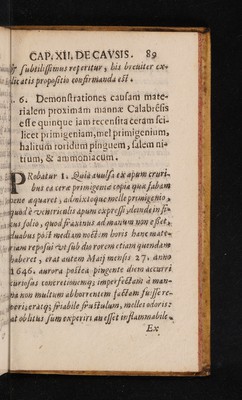 CAP. XII. DE CAVSIS. 89
subtilissimus reperitur, his breuiter ex-
licatis propositio confirmanda est.
6. Demonstrationes causam mate-
rialem proximam mannæ Calabrësis
esse quinque iam recensita ceram sci-
licet primigeniam, mel primigenium,
halitum roridum pinguem, salem ni-
trum, & ammoniacum.
PRobatur 1. Quia auulsa ex apum cruri-
bus ea cera primigenia copia quæ fabam
æquaret, admixtoque melle primigenio,
quod è ventriculis apum expressi, deinde in si-
cus folio, quod fraxinus ad manum non esset,
duabus post mediam noctem horis hanc mate-
riam reposui vt sub dio rorem etiam quendam
haberet, erat autem Maij mensis 27. anno
1646. aurora postea pingente diem accurri
curiosus concretionemq; imperfectam à man-
na non multum abhorrentem factam fuisse re-
peri, eratq; friabile frustulum, mellei odoris:
at oblitus sum experiri an esset inflammabile.
Ex